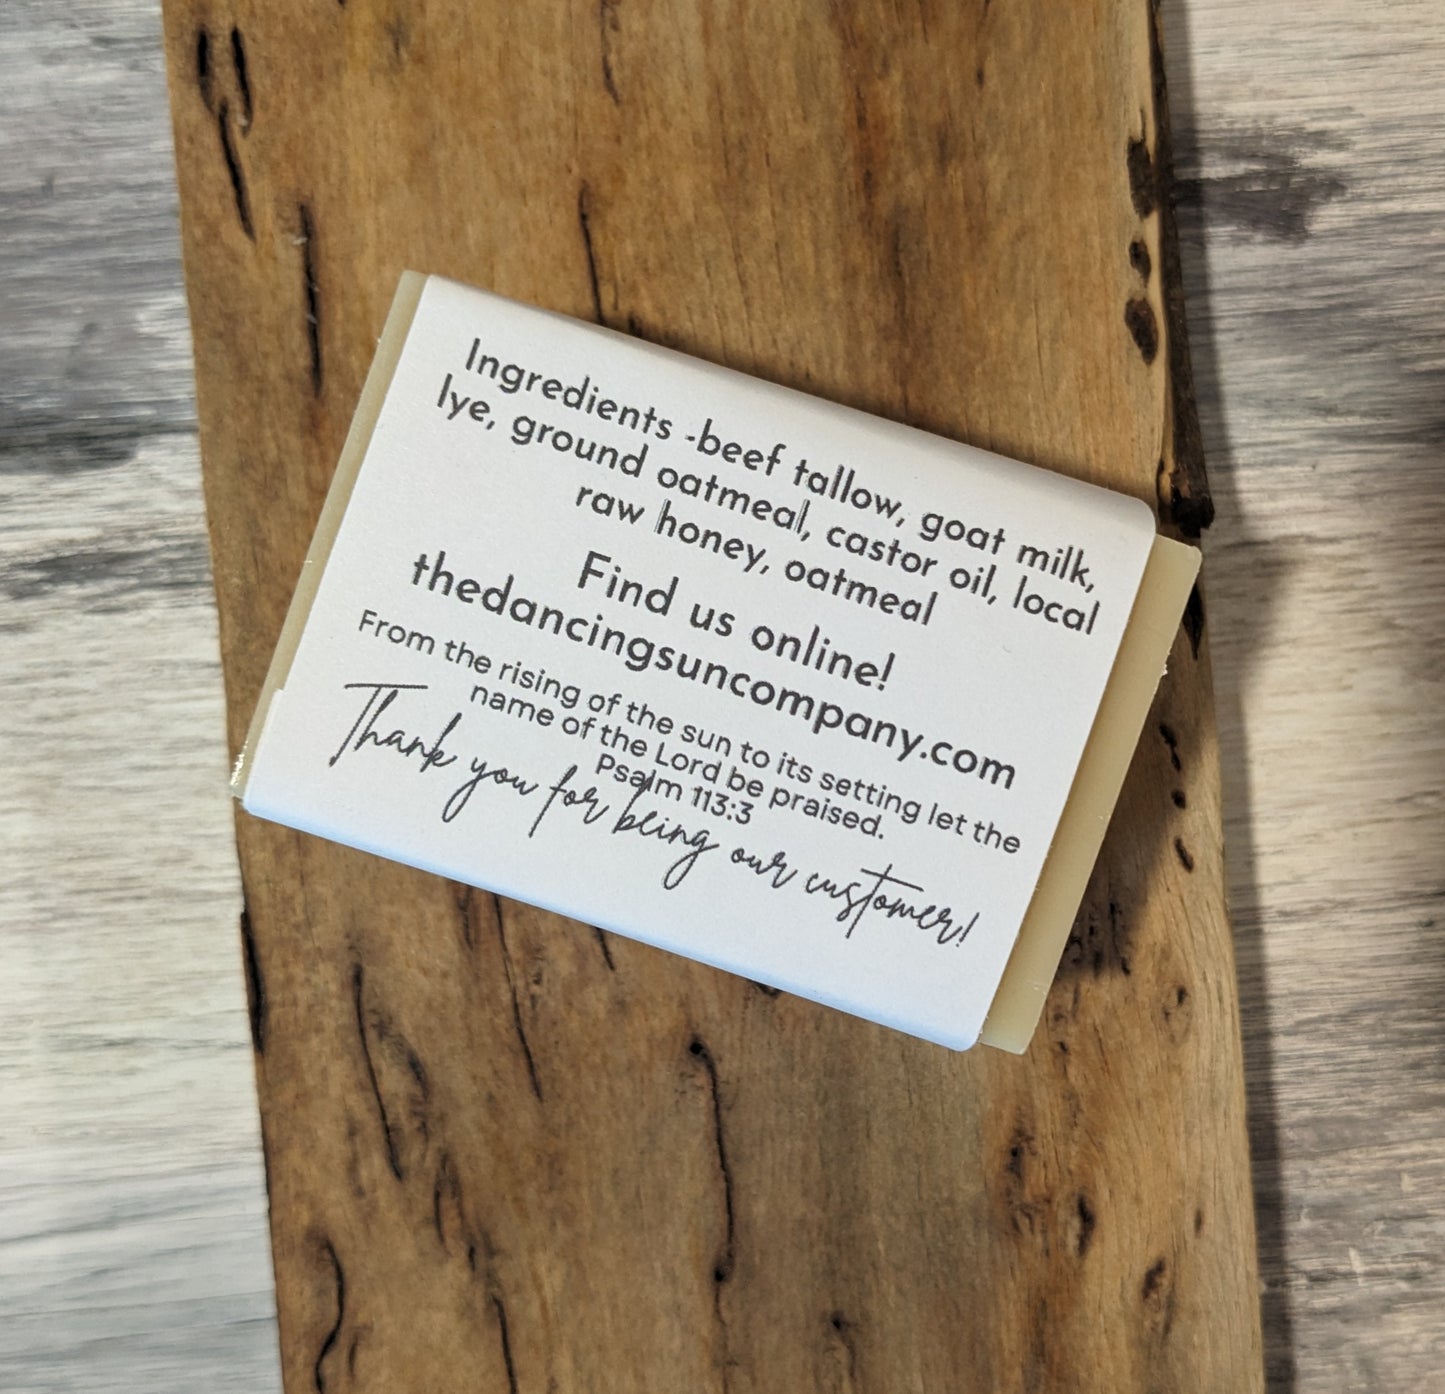 Ingredients -beef tallow, goat milk,
lye, ground oatmeal, castor oil, local
raw honey, oatmeal
Find us online!
thedancingsuncompany.com
From the rising of the sun to its setting let the
name of the Lord be praised.
Psalm 113:3
Thank you for being our customer!